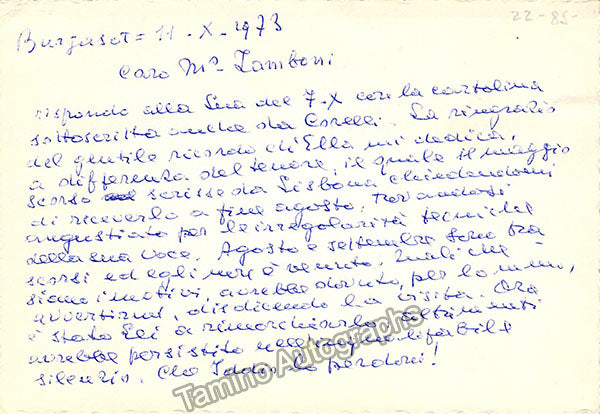 22-85-
Burjasot = 11 - X - 1973
Caro Mº Zamboni
rispondo alla Sua del 7-X con la cartolina
sottoscritta anche da Corelli. La ringrazio
del gentile ricordo ch'Ella mi dedica,
a differenza del tenore, il quale il maggio
scorso scrisse da Lisbona chiedendomi
di riceverlo a fine agosto, trovandosi
angustiato per le irregolarità tecniche
della sua voce. Agosto e settembre sono
scorsi ed egli non è venuto. Quali che
siano i motivi, avrebbe dovuto, per lo meno,
avvertirmi, disdicendo la visita. Ora
è stato Lei a rimorchiarlo, altrimenti
avrebbe persistito nell'inqualificabile
silenzio. Che Iddio lo perdoni!
Tamino Autographs